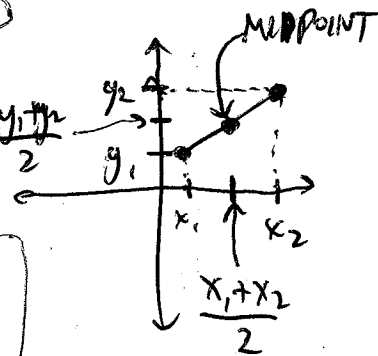 MIDPOINT
y₂
y₁+y₂
2
y₁
x₁
x₂
x₁+x₂
2